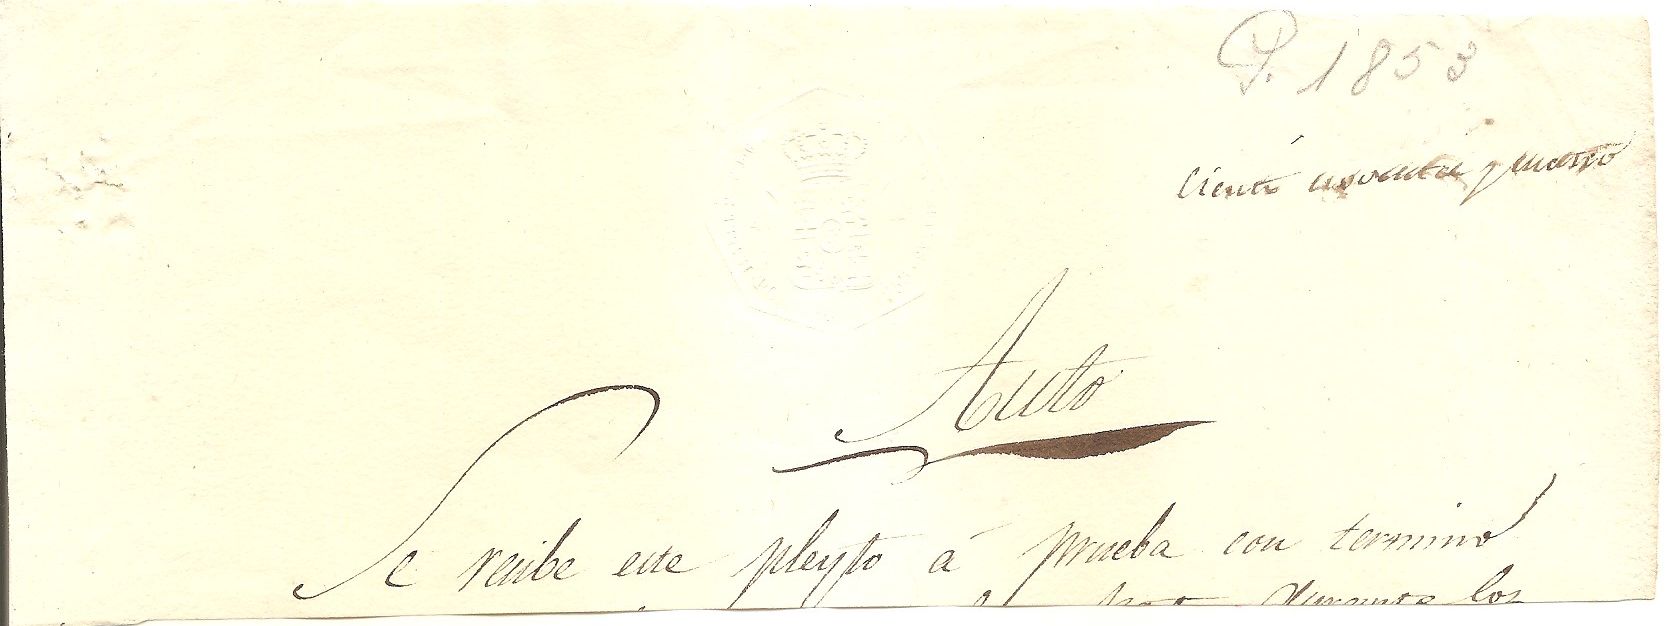 P. 1853
Ciento noventa y cuatro
Auto
Se recibe este pleyto á prueba con termino
durante los